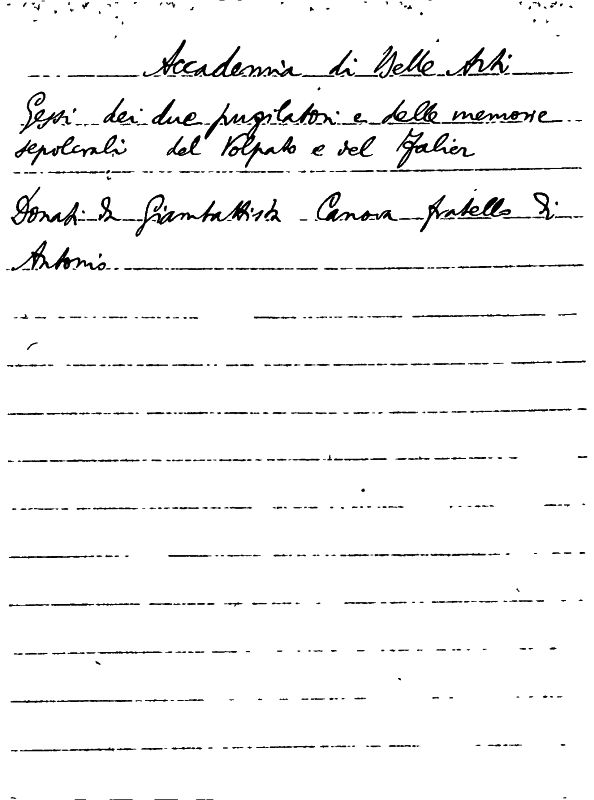 Accademia di Belle Arti
Gessi dei due pugilatori e delle memorie
sepolcrali del Volpato e del Falier
Donati da Giambattista Canova fratello di
Antonio